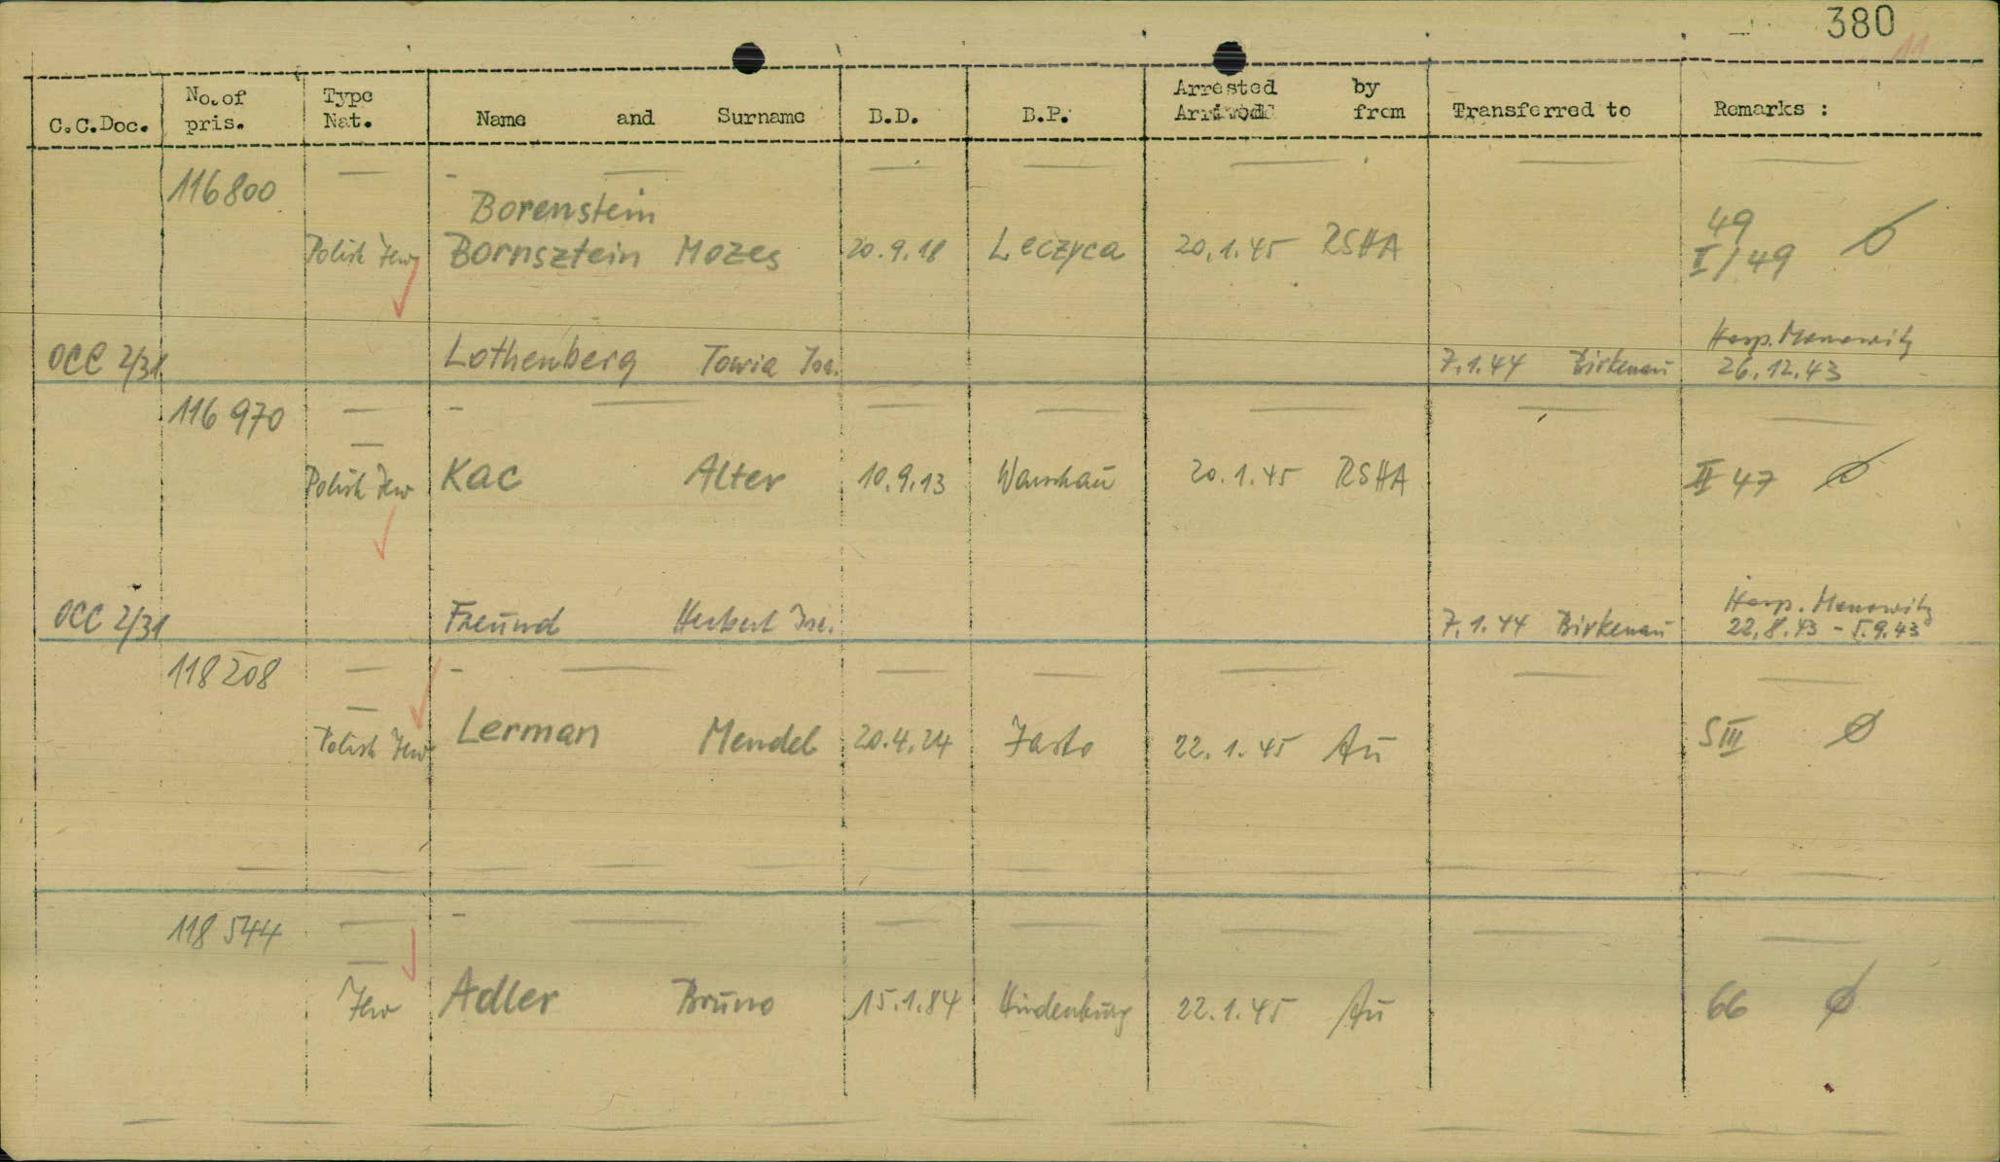 380
11
C.C.Doc. No. of pris. Type Nat. Name and Surname B.D. B.P. Arrested by Arrived from Transferred to Remarks :
116800
Borenstein 49
Polish Jew Bornsztein Mozes 20.9.18 Leczyca 20.1.45 RSHA I/49 Ø
Hosp. Monowitz
OCC 2/31 Lothenberg Towia Isr. 7.1.44 Birkenau 26.12.43
116970
Polish Jew Kac Alter 10.9.13 Warschau 20.1.45 RSHA II 47 Ø
Hosp. Monowitz
OCC 2/31 Freund Herbert Isr. 7.1.44 Birkenau 22.8.43 - 5.9.43
118208
Polish Jew Lerman Mendel 20.4.24 Jasło 22.1.45 Au S III Ø
118544
Jew Adler Bruno 15.1.84 Hindenburg 22.1.45 Au 66 Ø